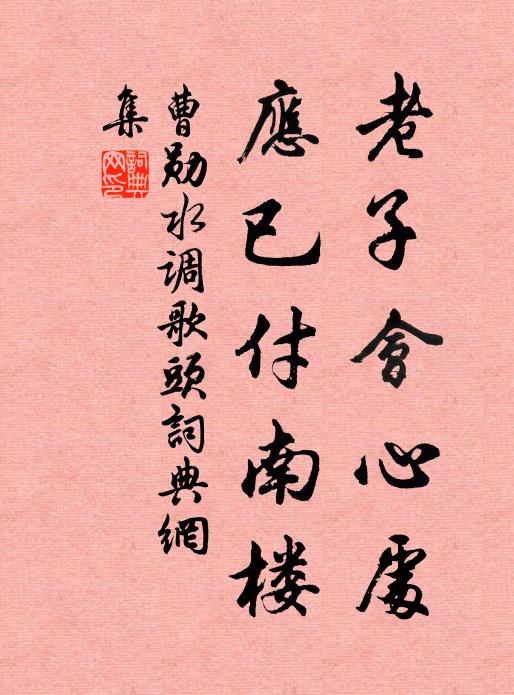 老子會心處
應已付南楼
曹勋水调歌頭詞典網
集
詞典网印